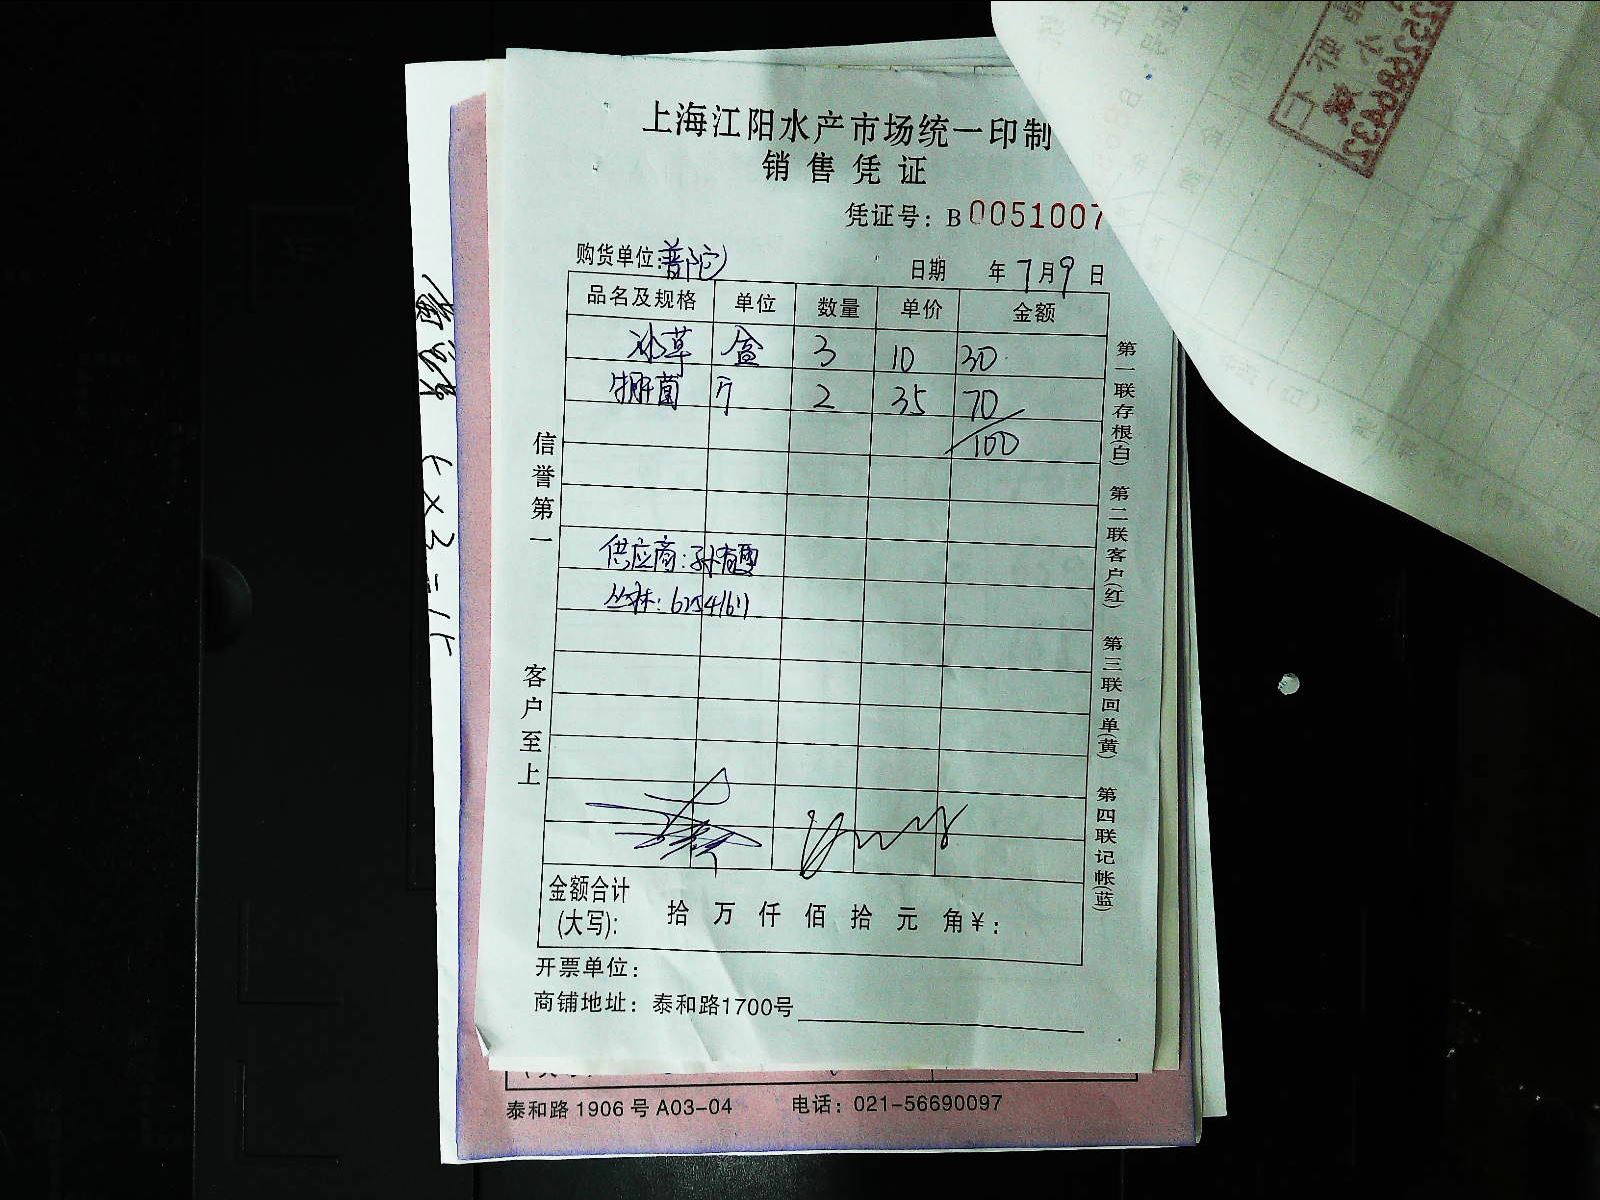 上海江阳水产市场统一印制
销售凭证
凭证号：B 0051007
购货单位：普陀
日期 年 7月9日
品名及规格 单位 数量 单价 金额
冰草 盒 3 10 30
牛肝菌 斤 2 35 70
100
供应商：孙有雯
丛林：6254161
信誉第一
客户至上
第一联存根(白) 第二联客户(红) 第三联回单(黄) 第四联记帐(蓝)
金额合计(大写)： 拾 万 仟 佰 拾 元 角 ¥：
开票单位：
商铺地址：泰和路1700号
泰和路 1906 号 A03-04 电话：021-56690097
5×3=15